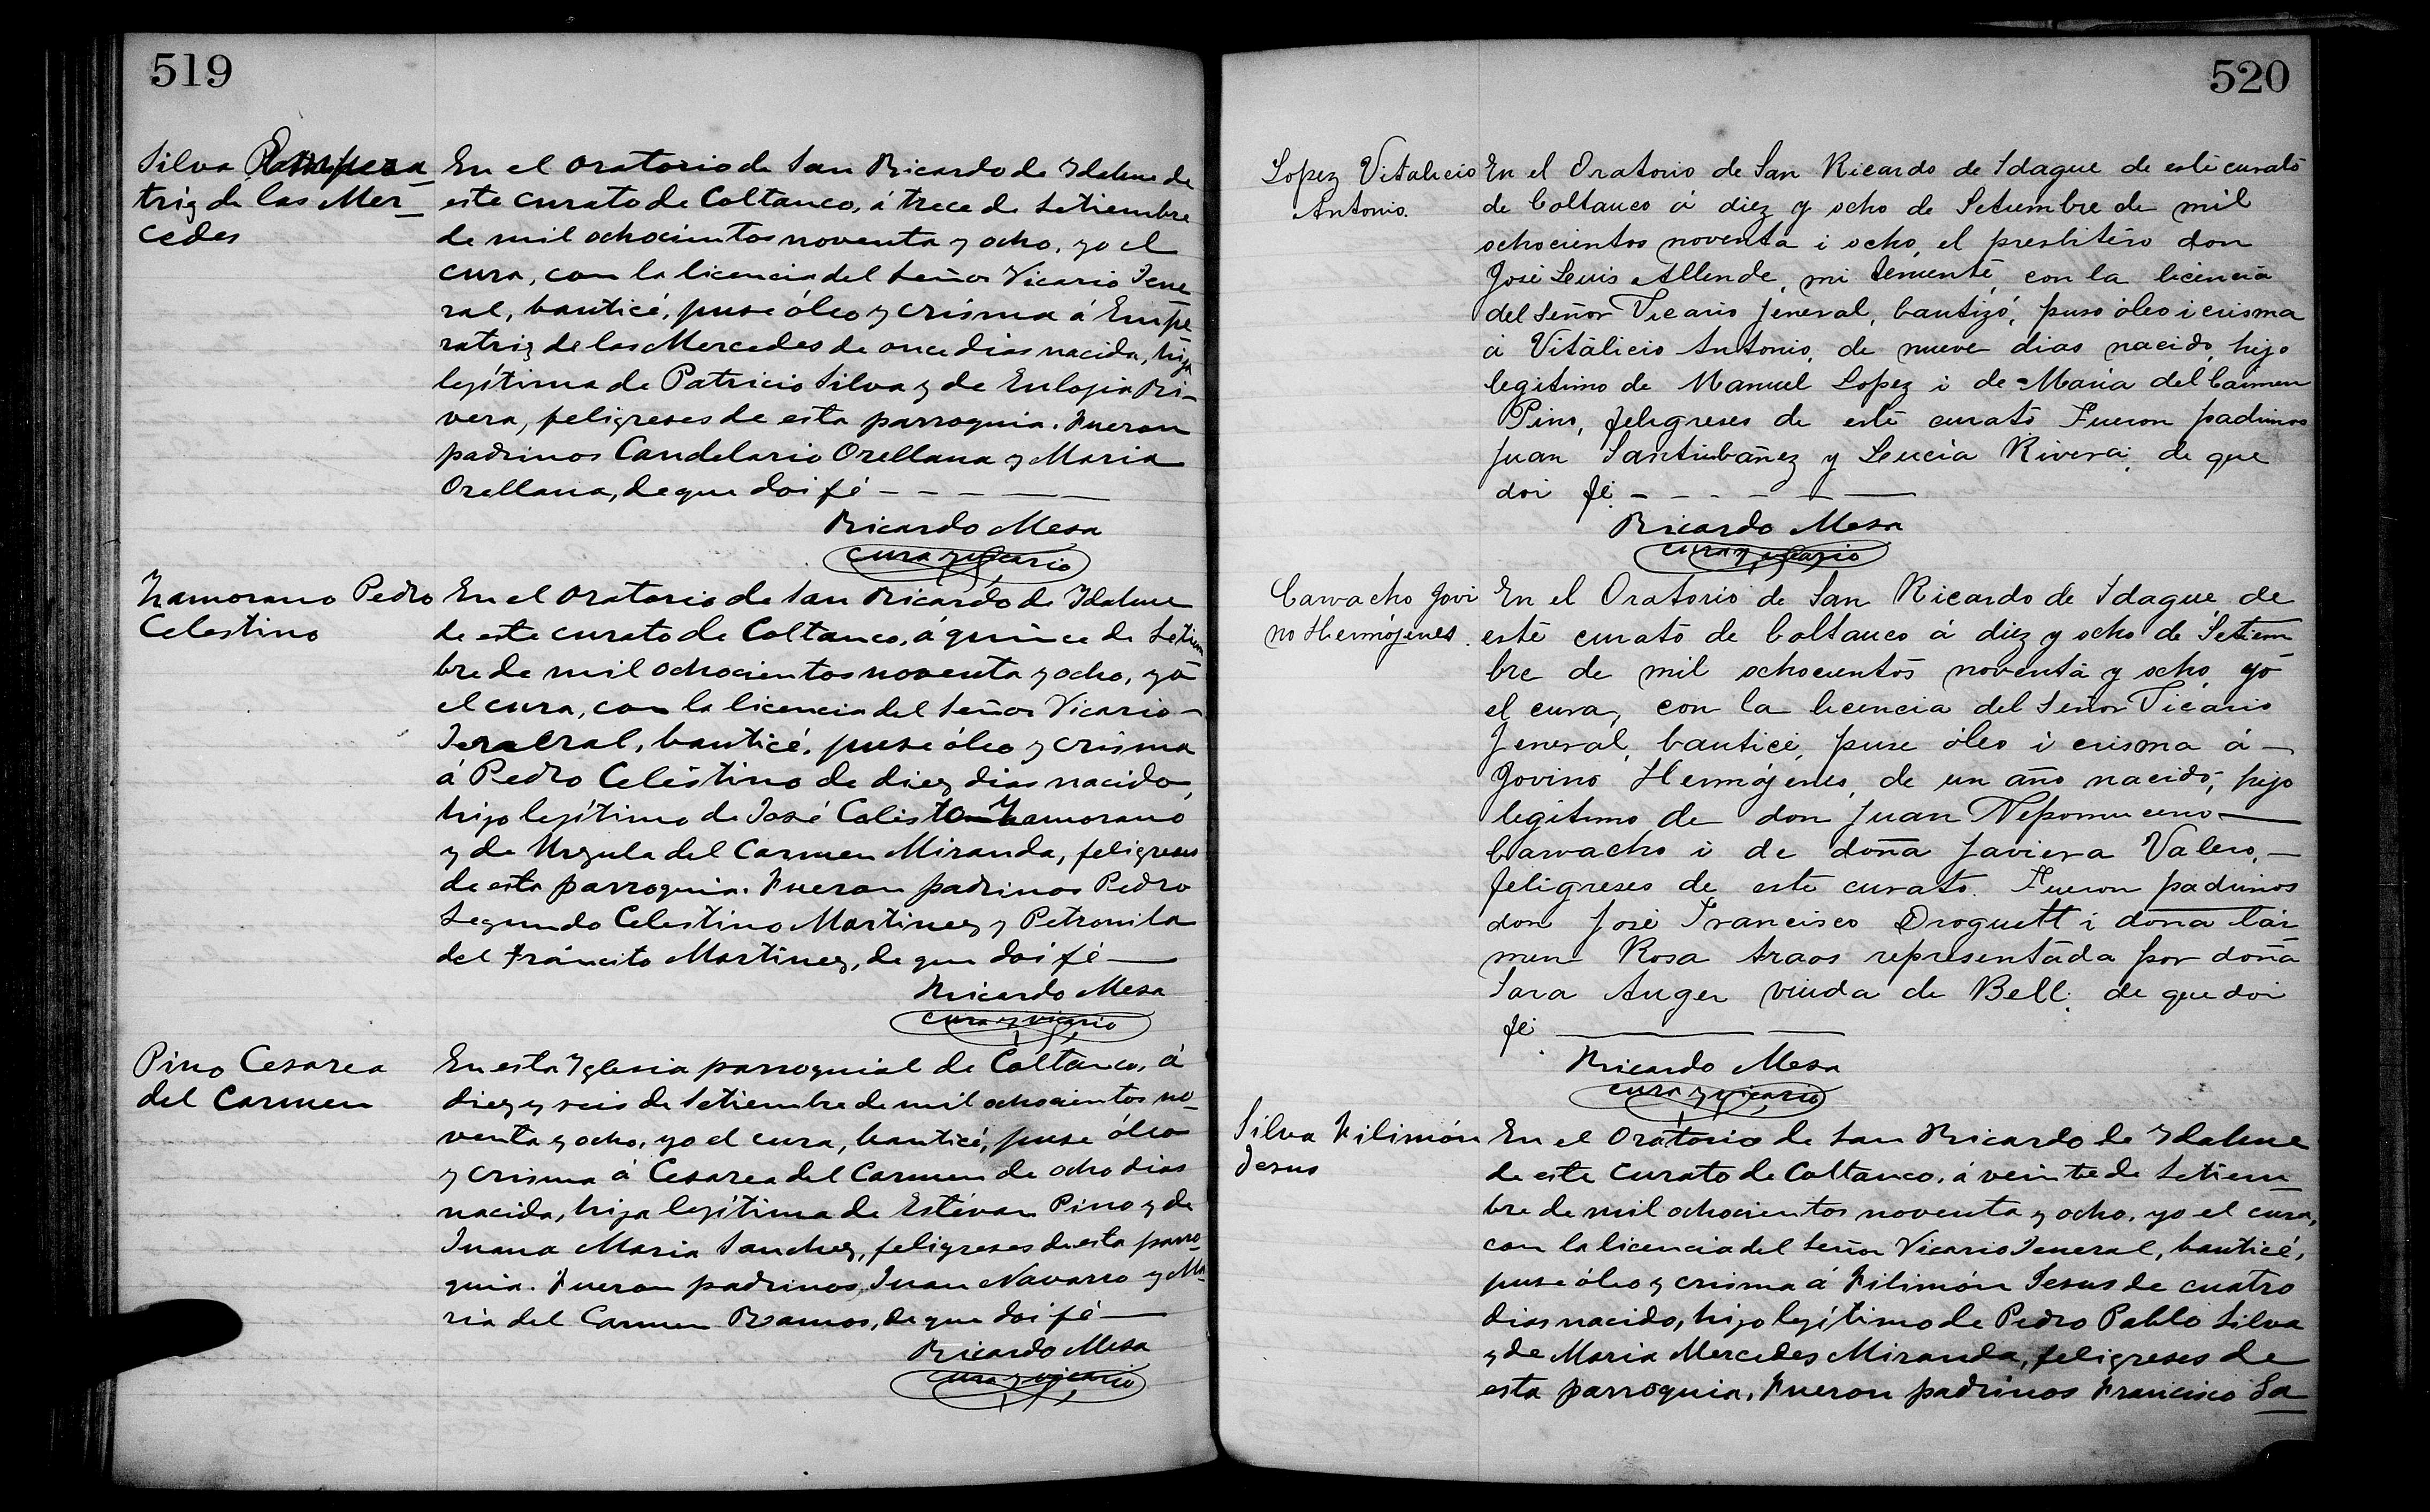 519
Silva Empera
triz de las Mer-
cedes
En el oratorio de San Ricardo de Idahue de
este curato de Coltauco, á trece de Setiembre
de mil ochocientos noventa y ocho, yo el
cura, con la licencia del Señor Vicario Jene
ral, bauticé, puse óleo y crisma á Empe
ratriz de las Mercedes de once dias nacida, hija
lejítima de Patricio Silva y de Eulojia Ri-
vera, feligreses de esta parroquia. Fueron
padrinos Candelario Orellana y Maria
Orellana, de que doi fé - - - - -
Ricardo Mesa
cura y vicario
Zamorano Pedro
Celestino
En el oratorio de San Ricardo de Idahue
de este curato de Coltauco, á quince de Setiem
bre de mil ochocientos noventa y ocho, yo
el cura, con la licencia del Señor Vicario -
Jeneral, bauticé, puse óleo y crisma
á Pedro Celestino de diez dias nacido,
hijo lejítimo de José Calisto Zamorano
y de Ursula del Carmen Miranda, feligreses
de esta parroquia. Fueron padrinos Pedro
Segundo Celestino Martinez y Petronila
del Tránsito Martinez, de que doi fé —
Ricardo Mesa
cura y vicario
Pino Cesarea
del Carmen
En esta Iglesia parroquial de Coltauco, á
diez y seis de Setiembre de mil ochocientos no-
venta y ocho, yo el cura, bauticé, puse óleo
y crisma á Cesarea del Carmen de ocho dias
nacida, hija lejítima de Estévan Pino y de
Juana Maria Sanchez, feligreses de esta parro-
quia. Fueron padrinos Juan Navarro y Ma-
ria del Carmen Ramos, de que doi fé —
Ricardo Mesa
cura y vicario
520
Lopez Vitalicio
Antonio.
En el Oratorio de San Ricardo de Idague de este curato
de Coltauco á diez y ocho de Setiembre de mil
ochocientos noventa i ocho, el presbitero don
José Luis Allende, mi teniente, con la licencia
del Señor Vicario Jeneral, bautizó, puso óleo i crisma
á Vitalicio Antonio, de nueve dias nacido, hijo
legitimo de Manuel Lopez i de Maria del Carmen
Pino, feligreses de este curato Fueron padrinos
Juan Santibañez y Lucia Rivera; de que
doi fé. - - - - -
Ricardo Mesa
cura y vicario
Carvacho Jovi
no Hermójenes.
En el Oratorio de San Ricardo de Idague de
este curato de Coltauco á diez y ocho de Setiem
bre de mil ochocientos noventa y ocho, yo
el cura, con la licencia del Señor Vicario
Jeneral, bauticé, puse óleo i crisma á —
Jovino Hermójenes, de un año nacido, hijo
legitimo de don Juan Nepomuceno —
Carvacho i de doña Javiera Valero, —
feligreses de este curato. Fueron padrinos
don José Francisco Droguett i doña Cár
men Rosa Araos representada por doña
Sara Auger viuda de Bell: de que doi
fé. —
Ricardo Mesa
cura y vicario
Silva Filimón
Jesus
En el Oratorio de San Ricardo de Idahue
de este Curato de Coltauco, á veinte de Setiem-
bre de mil ochocientos noventa y ocho, yo el cura,
con la licencia del Señor Vicario Jeneral, bauticé,
puse óleo y crisma á Filimón Jesus de cuatro
dias nacido, hijo lejítimo de Pedro Pablo Silva
y de Maria Mercedes Miranda, feligreses de
esta parroquia. Fueron padrinos Francisco Sa